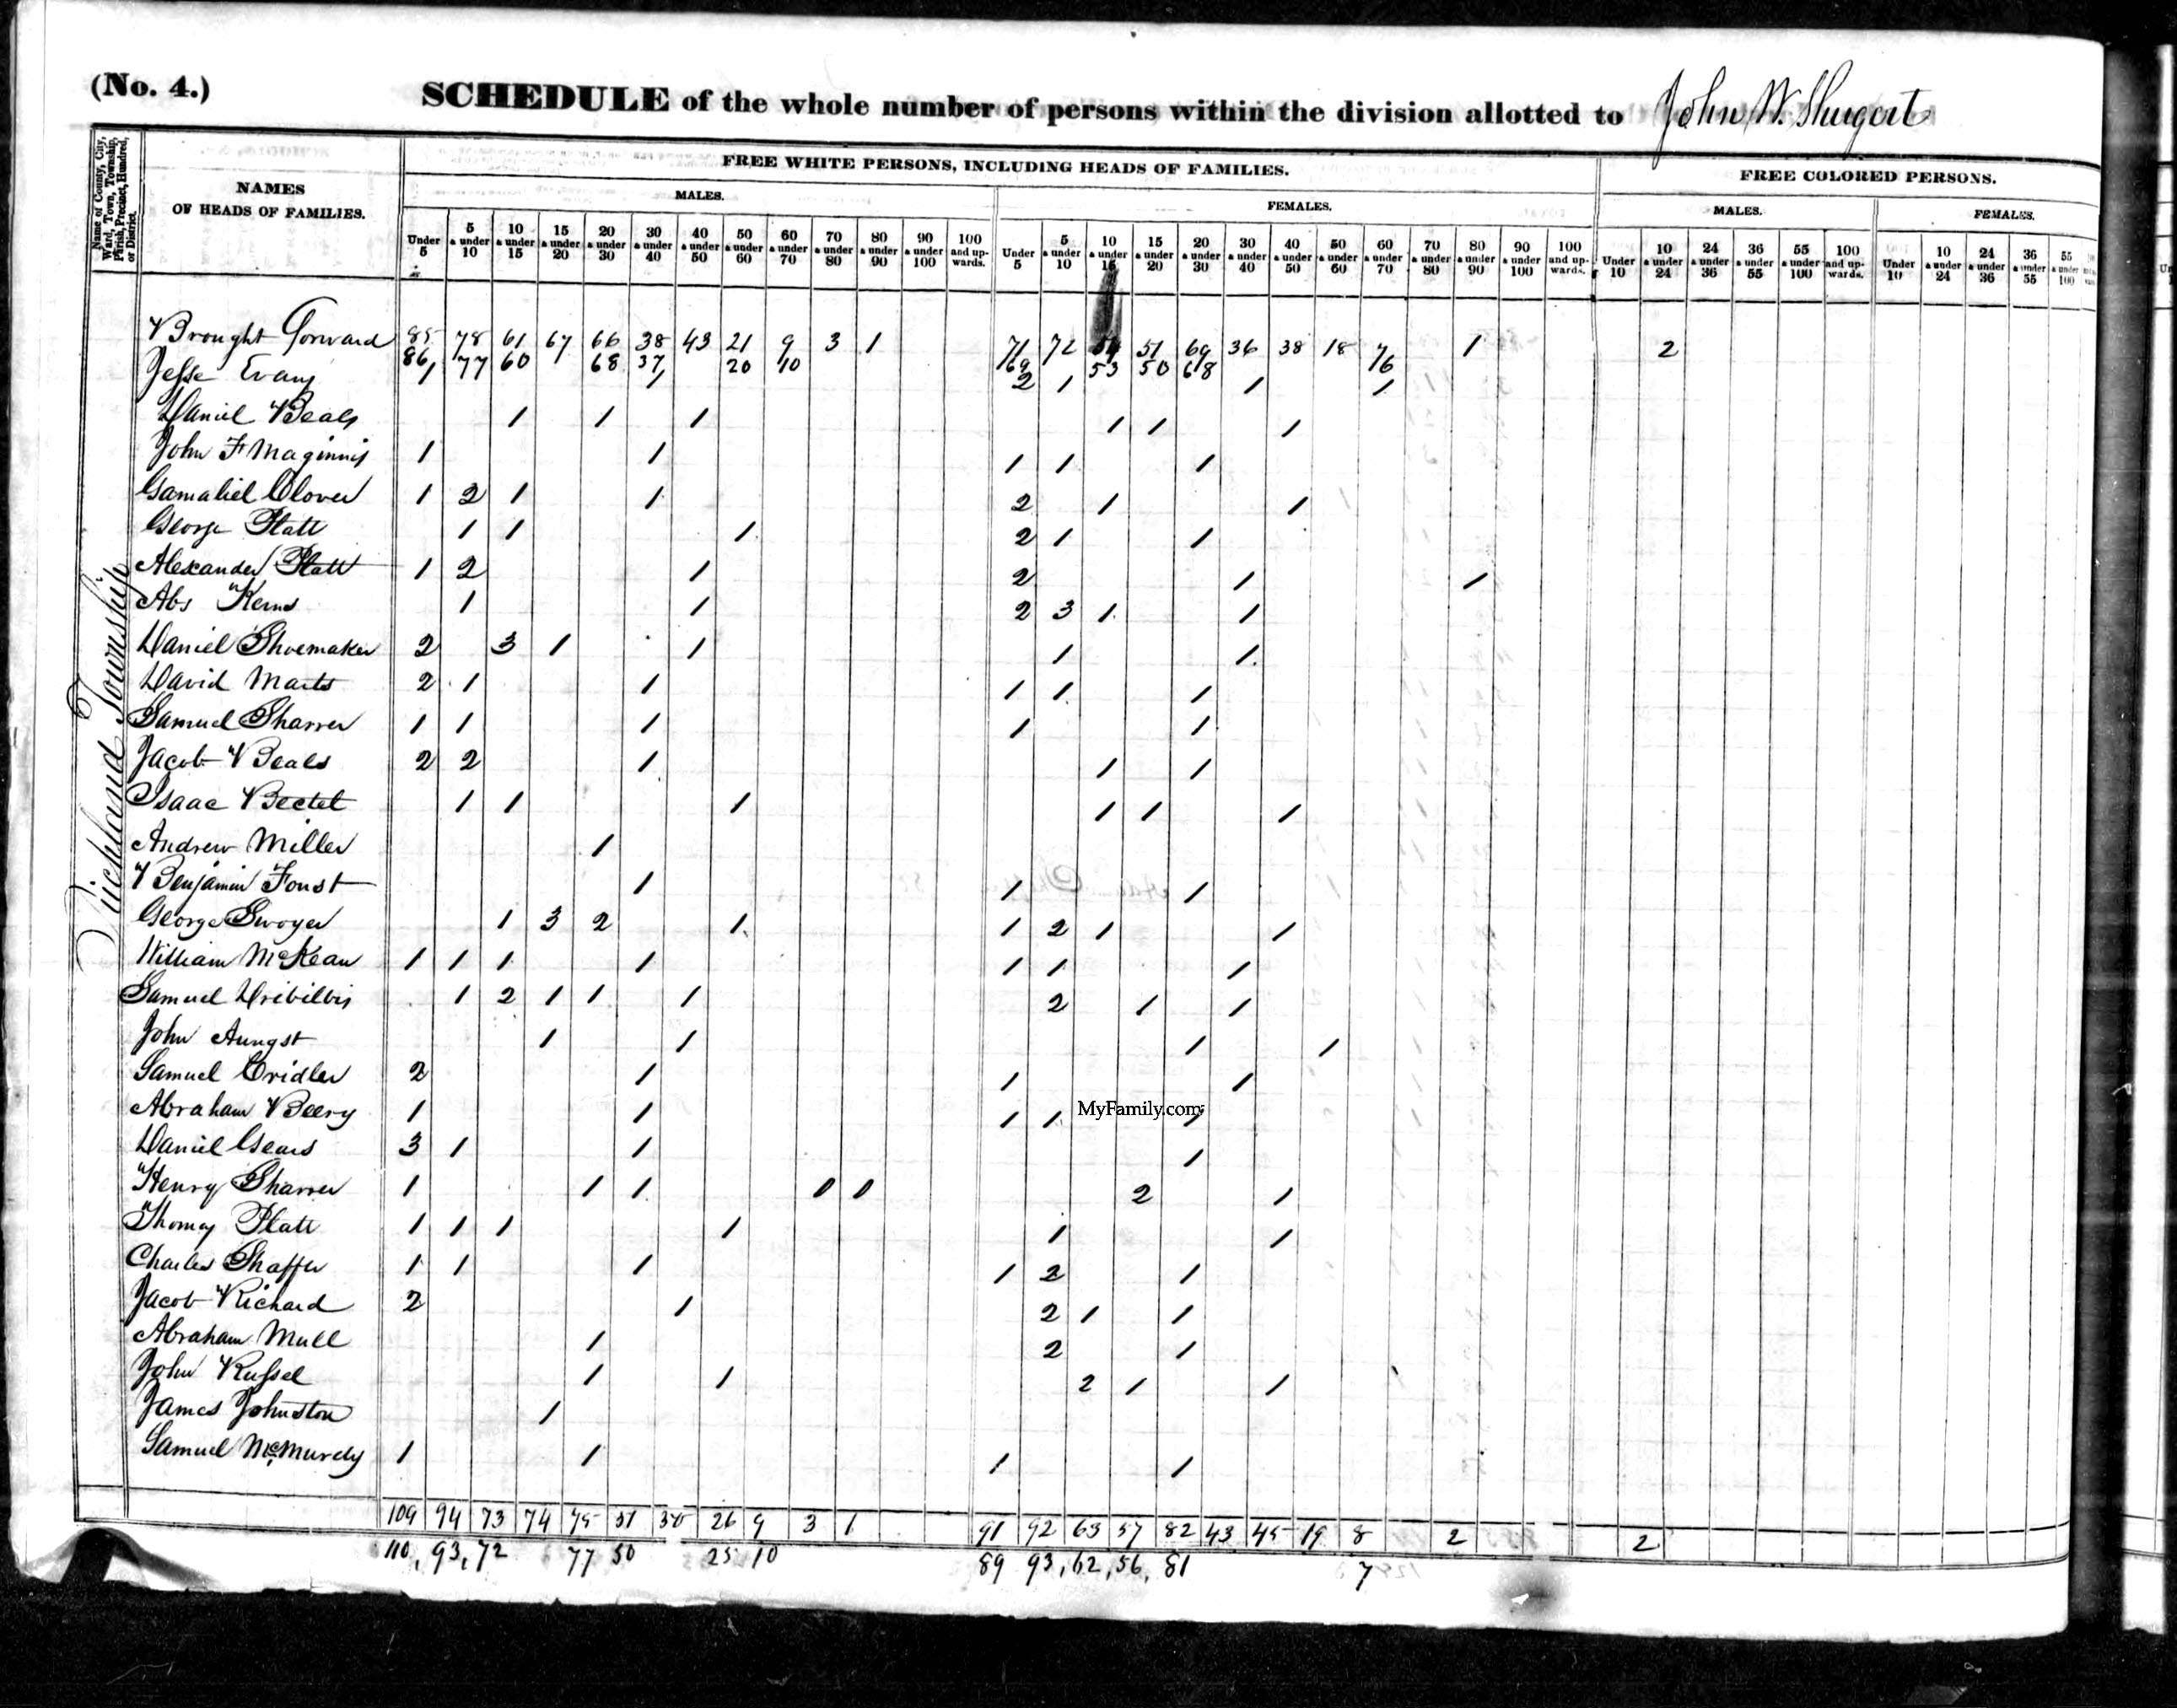 (No. 4.)
SCHEDULE of the whole number of persons within the division allotted to John W. Shugert
Name of County, City, Ward, Town, Township, Parish, Precinct, Hundred, or District.
NAMES OF HEADS OF FAMILIES.
FREE WHITE PERSONS, INCLUDING HEADS OF FAMILIES.
FREE COLORED PERSONS.
MALES. FEMALES. MALES. FEMALES.
Under 5 5 & under 10 10 & under 15 15 & under 20 20 & under 30 30 & under 40 40 & under 50 50 & under 60 60 & under 70 70 & under 80 80 & under 90 90 & under 100 100 and upwards. Under 5 5 & under 10 10 & under 15 15 & under 20 20 & under 30 30 & under 40 40 & under 50 50 & under 60 60 & under 70 70 & under 80 80 & under 90 90 & under 100 100 and upwards. Under 10 10 & under 24 24 & under 36 36 & under 55 55 & under 100 100 and upwards. Under 10 10 & under 24 24 & under 36 36 & under 55 55 & under 100
Richland Township
Brought Forward 85 78 61 67 66 38 43 21 9 3 1 71 72 54 51 69 36 38 18 7 1 2
86 77 60 68 37 20 10 69 53 50 68 6
Jesse Evans 1 1 2 1 1 1
Daniel Beals 1 1 1 1 1 1
John F Maginnis 1 1 1 1 1
Gamaliel Clover 1 2 1 1 2 1 1
George Platt 1 1 1 2 1 1
Alexander Platt 1 2 1 2 1 1
Abs Kerns 1 1 2 3 1 1
Daniel Shoemaker 2 3 1 1 1 1
David Marts 2 1 1 1 1 1
Samuel Sharrer 1 1 1 1 1
Jacob Beals 2 2 1 1 1
Isaac Bectel 1 1 1 1 1 1
Andrew Miller 1
Benjamin Foust 1 1 1
George Swoyer 1 3 2 1 1 2 1 1
William McKean 1 1 1 1 1 1 1
Samuel Dribilbis 1 2 1 1 1 2 1 1
John Aungst 1 1 1 1
Samuel Cridler 2 1 1 1
Abraham Beery 1 1 1 1 1
MyFamily.com
Daniel Gears 3 1 1 1
Henry Sharrer 1 1 1 0 0 2 1
Thomas Platt 1 1 1 1 1 1
Charles Shaffer 1 1 1 1 2 1
Jacob Richard 2 1 2 1 1
Abraham Mull 1 2 1
John Russel 1 1 2 1 1
James Johnston 1
Samuel McMurdy 1 1 1 1
109 94 73 74 75 26 9 3 1 91 92 63 57 82 43 45 19 8 2 2
110, 93, 72 77 50 25 10 89 93, 62, 56, 81 7